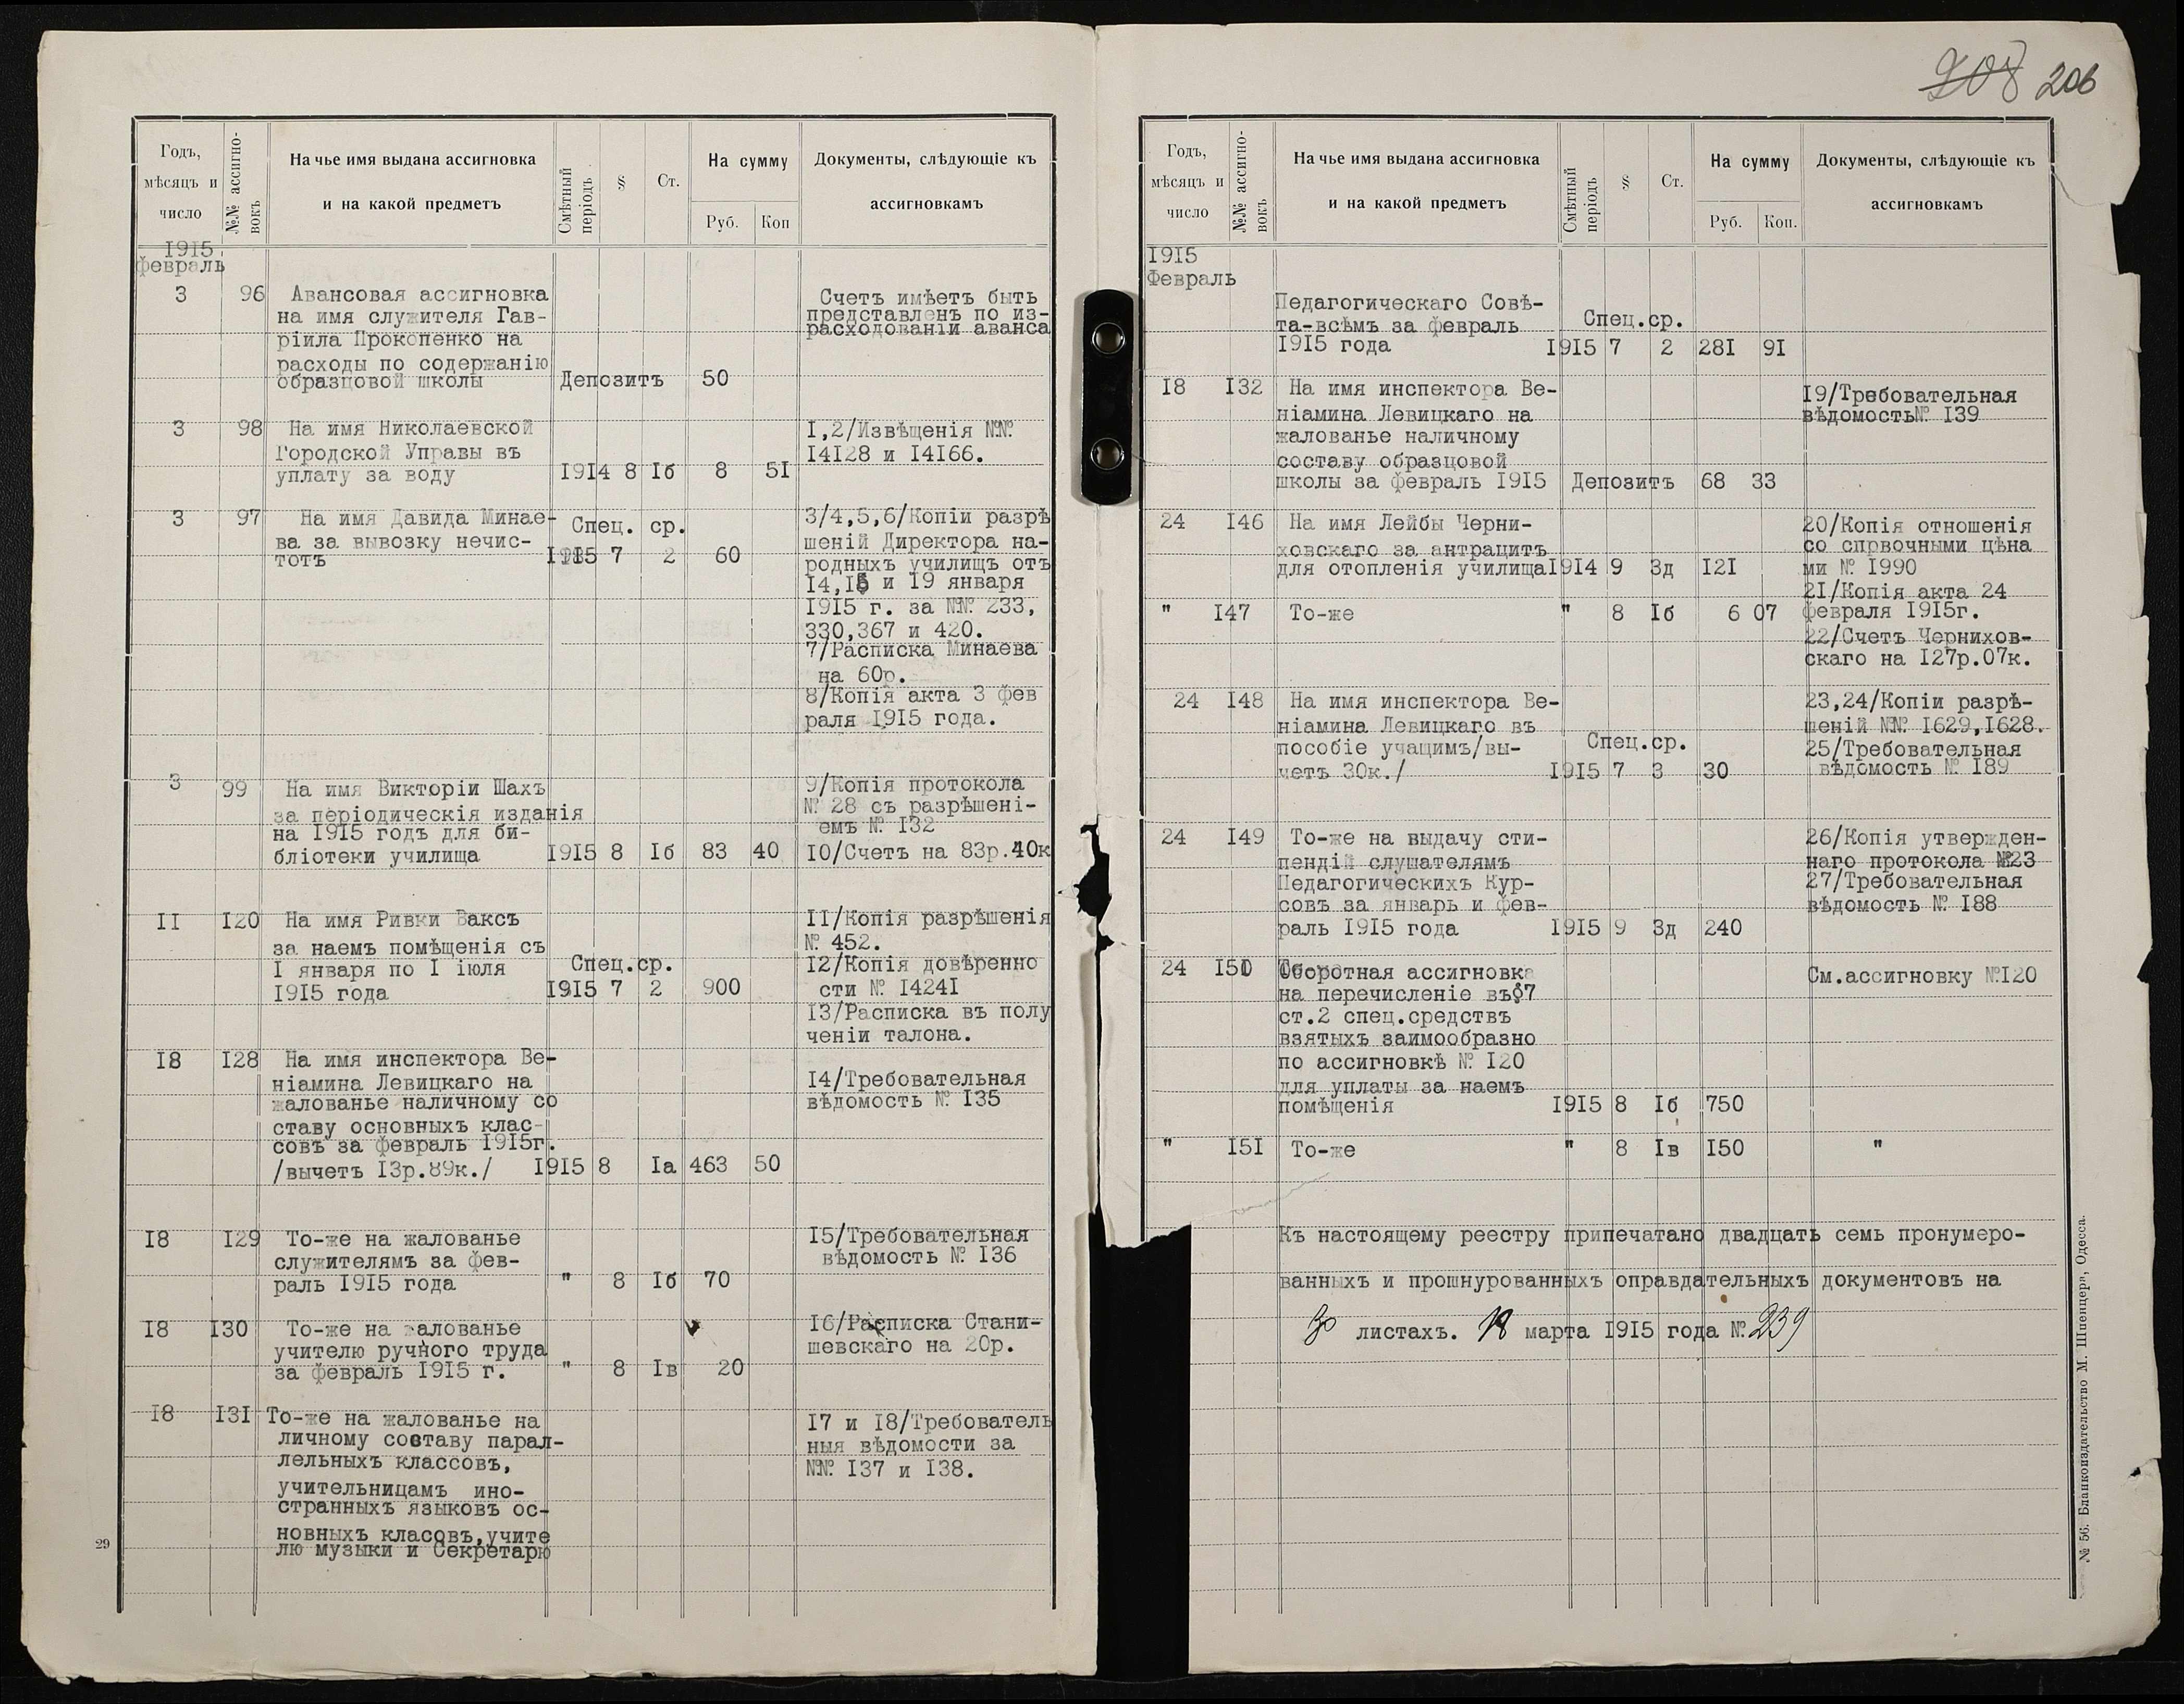 208 206
Годъ,
мѣсяцъ и
число
№№ ассигно-
вокъ
На чье имя выдана ассигновка
и на какой предметъ
Смѣтный
періодъ
§
Ст.
На сумму
Руб. Коп
Документы, слѣдующіе къ
ассигновкамъ
1915
февраль
3 96 Авансовая ассигновка
на имя служителя Гав-
ріила Прокопенко на
расходы по содержанію
образцовой школы Депозитъ 50
Счетъ имѣетъ быть
представленъ по из-
расходованіи аванса
3 98 На имя Николаевской
Городской Управы въ
уплату за воду 1914 8 Iб 8 5I
I,2/Извѣщенія №№
I4I28 и I4I66.
3 97 На имя Давида Минае-
ва за вывозку нечис-
тотъ
Спец. ср.
1915 7 2 60
3/4,5,6/Копіи разрѣ
шеній Директора на-
родныхъ училищъ отъ
I4,I5 и I9 января
I9I5 г. за №№ 233,
330,367 и 420.
7/Расписка Минаева
на 60р.
8/Копія акта 3 фев
раля I9I5 года.
3 99 На имя Викторіи Шахъ
за періодическія изданія
на I9I5 годъ для би-
бліотеки училища I9I5 8 Iб 83 40
9/Копія протокола
№ 28 съ разрѣшені-
емъ № I32
I0/Счетъ на 83р.40к
II I20 На имя Ривки Ваксъ
за наемъ помѣщенія съ
I января по I іюля
I9I5 года
Спец.ср.
I9I5 7 2 900
II/Копія разрѣшенія
№ 452.
I2/Копія довѣренно
сти № I424I
I3/Расписка въ полу
ченіи талона.
I8 I28 На имя инспектора Ве-
ніамина Левицкаго на
жалованье наличному со
ставу основныхъ клас-
совъ за февраль I9I5г.
/вычетъ I3р.89к./ I9I5 8 Iа 463 50
I4/Требовательная
вѣдомость № I35
I8 I29 То-же на жалованье
служителямъ за фев-
раль I9I5 года " 8 Iб 70
I5/Требовательная
вѣдомость № I36
I8 I30 То-же на жалованье
учителю ручного труда
за февраль I9I5 г. " 8 Iв 20
I6/Расписка Стани-
шевскаго на 20р.
I8 I3I То-же на жалованье на
личному составу парал-
лельныхъ классовъ,
учительницамъ ино-
странныхъ языковъ ос-
новныхъ класовъ,учите
лю музыки и Секретарю
I7 и I8/Требователь
ныя вѣдомости за
№№ I37 и I38.
29
Годъ,
мѣсяцъ и
число
№№ ассигно-
вокъ
На чье имя выдана ассигновка
и на какой предметъ
Смѣтный
періодъ
§
Ст.
На сумму
Руб. Коп.
Документы, слѣдующіе къ
ассигновкамъ
I9I5
Февраль
Педагогическаго Совѣ-
та-всѣмъ за февраль
I9I5 года
Спец.ср.
I9I5 7 2 28I 9I
I8 I32 На имя инспектора Ве-
ніамина Левицкаго на
жалованье наличному
составу образцовой
школы за февраль I9I5 Депозитъ 68 33
I9/Требовательная
вѣдомость№ I39
24 I46 На имя Лейбы Черни-
ховскаго за антрацитъ
для отопленія училища I9I4 9 3д I2I
20/Копія отношенія
со спрвочными цѣна
ми № I990
2I/Копія акта 24
февраля I9I5г.
22/Счетъ Чернихов-
скаго на I27р.07к.
" I47 То-же " 8 Iб 6 07
24 I48 На имя инспектора Ве-
ніамина Левицкаго въ
пособіе учащимъ/вы-
четъ 30к./
Спец.ср.
I9I5 7 3 30
23,24/Копіи разрѣ-
шеній №№ I629,I628.
25/Требовательная
вѣдомость № I89
24 I49 То-же на выдачу сти-
пендій слушателямъ
Педагогическихъ Кур-
совъ за январь и фев-
раль I9I5 года I9I5 9 3д 240
26/Копія утвержден-
наго протокола №23
27/Требовательная
вѣдомость № I88
24 I50 Оборотная ассигновка
на перечисленіе въ§7
ст.2 спец.средствъ
взятыхъ заимообразно
по ассигновкѣ № I20
для уплаты за наемъ
помѣщенія I9I5 8 Iб 750
См.ассигновку №I20
" I5I То-же " 8 Iв I50 "
Къ настоящему реестру припечатано двадцать семь пронумеро-
ванныхъ и прошнурованныхъ оправдательныхъ документовъ на
30 листахъ. 18 марта I9I5 года № 239
№ 56. Бланкоиздательство М. Шпенцера, Одесса.